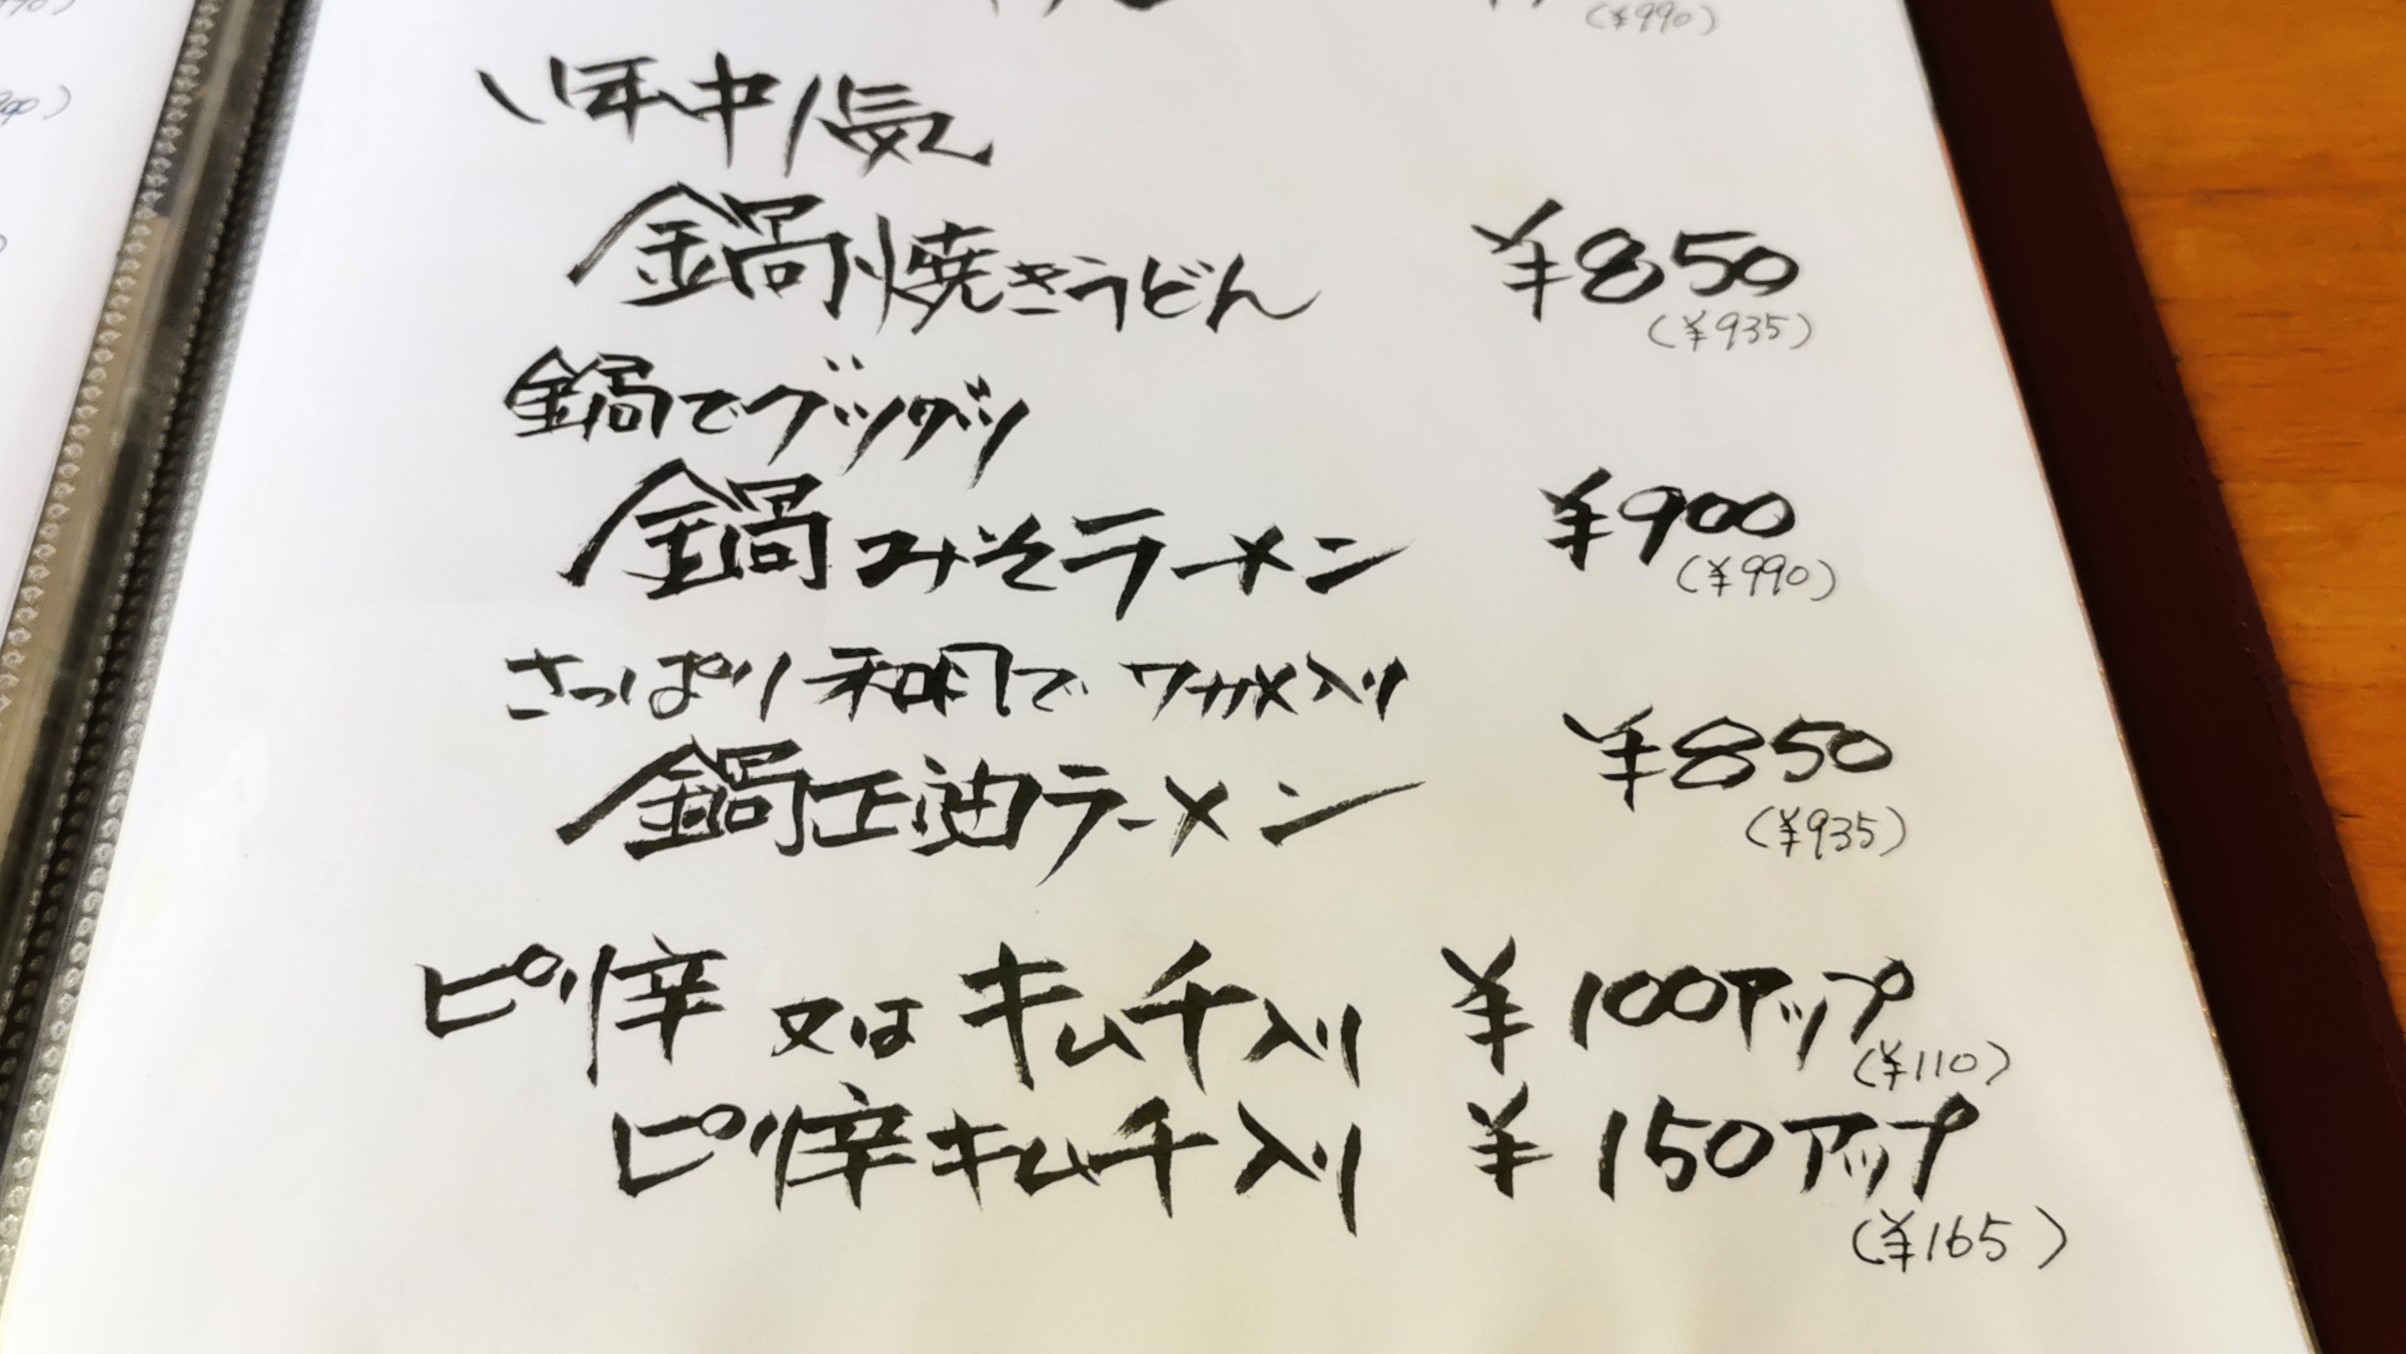 (¥990)
い年中人気
鍋焼きうどん ¥850
(¥935)
鍋でグツグツ
鍋みそラーメン ¥900
(¥990)
さっぱり和風で ワカメ入り
鍋正油ラーメン ¥850
(¥935)
ピリ辛 又は キムチ入り ¥100アップ
(¥110)
ピリ辛キムチ入り ¥150アップ
(¥165)